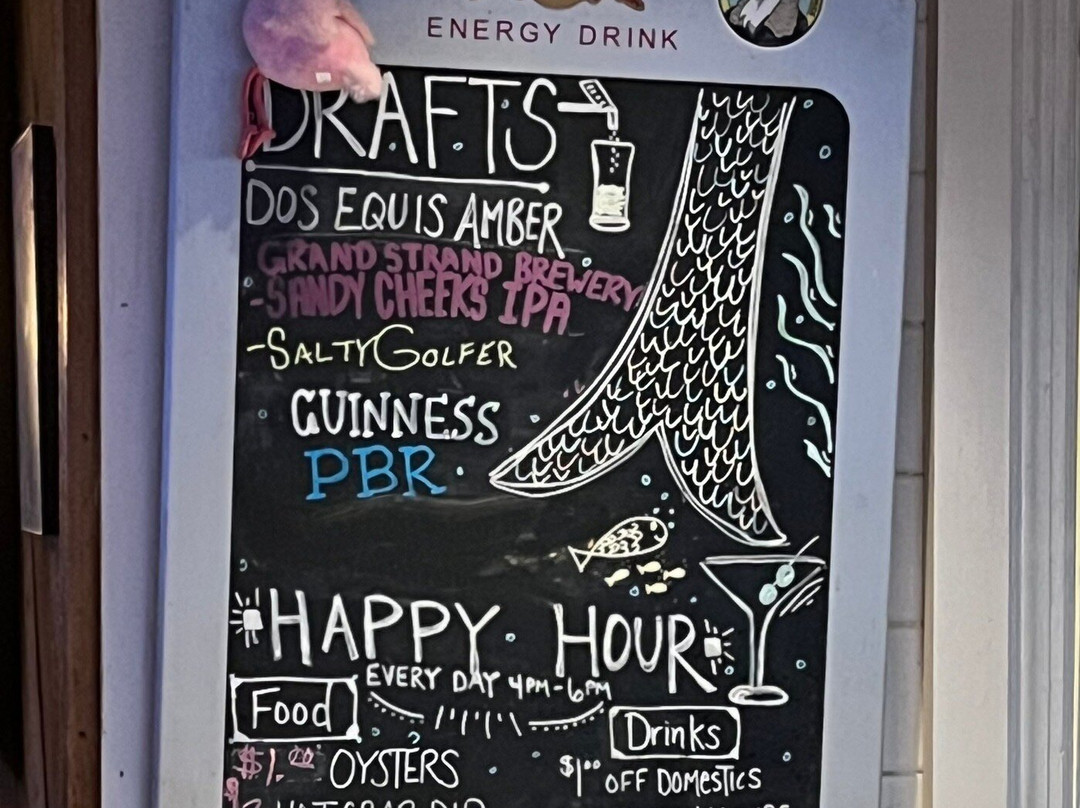 ENERGY DRINK
DRAFTS
DOS EQUIS AMBER
GRAND STRAND BREWERY
-SANDY CHEEKS IPA
-SALTY GOLFER
GUINNESS
PBR
HAPPY HOUR
EVERY DAY 4PM-6PM
Food
Drinks
$1.00 OYSTERS
$1.00 OFF DOMESTICS